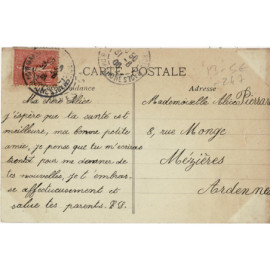 CARTE POSTALE
Correspondance
Adresse
Ma chère Alice
j'espère que ta santé est
meilleure, ma bonne petite
amie, je pense que tu m'écriras
bientôt pour me donner de
tes nouvelles, je t'embrasse
affectueusement et
salue tes parents.
Mademoiselle Alice Pierrard
8, rue Monge
Mézières
Ardennes